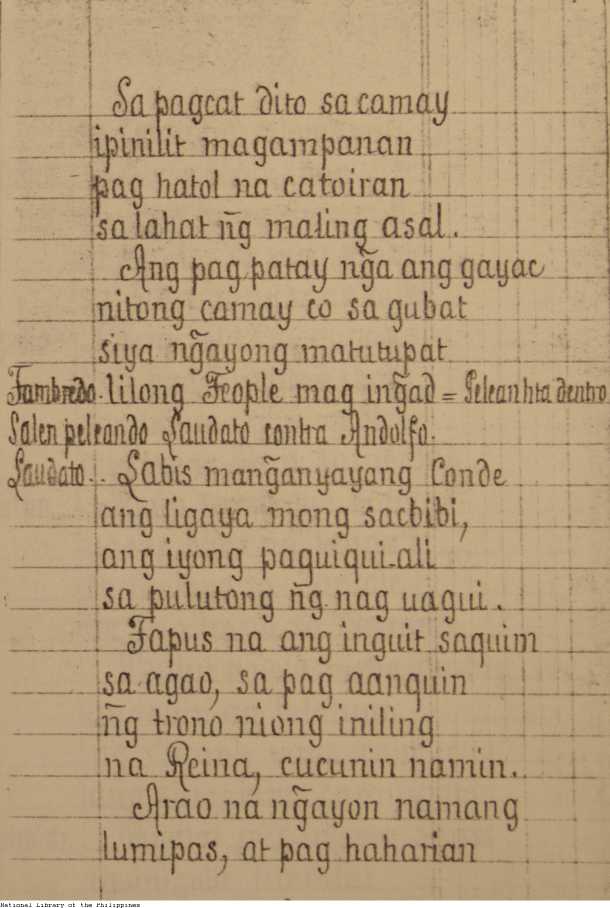 Sa pagcat dito sa camay
ipinilit magampanan
pag hatol na catoiran
sa lahat n̄g maling asal.
Ang pag patay n̄ga ang gayac
nitong camay co sa gubat
siya n̄gayong matutupat
Fambredo. lilong Feople mag in̄gad = Peleanhta dentro
Salen peleando Laudato contra Andolfo.
Laudato.. Labis man̄ganyayang Conde
ang ligaya mong sacbibi,
ang iyong paguiqui-ali
sa pulutong n̄g nag uagui.
Tapus na ang inguit saquim
sa agao, sa pag aanquin
n̄g trono niong iniling
na Reina, cucunin namin.
Arao na n̄gayon namang
lumipas, at pag haharian
National Library of the Philippines